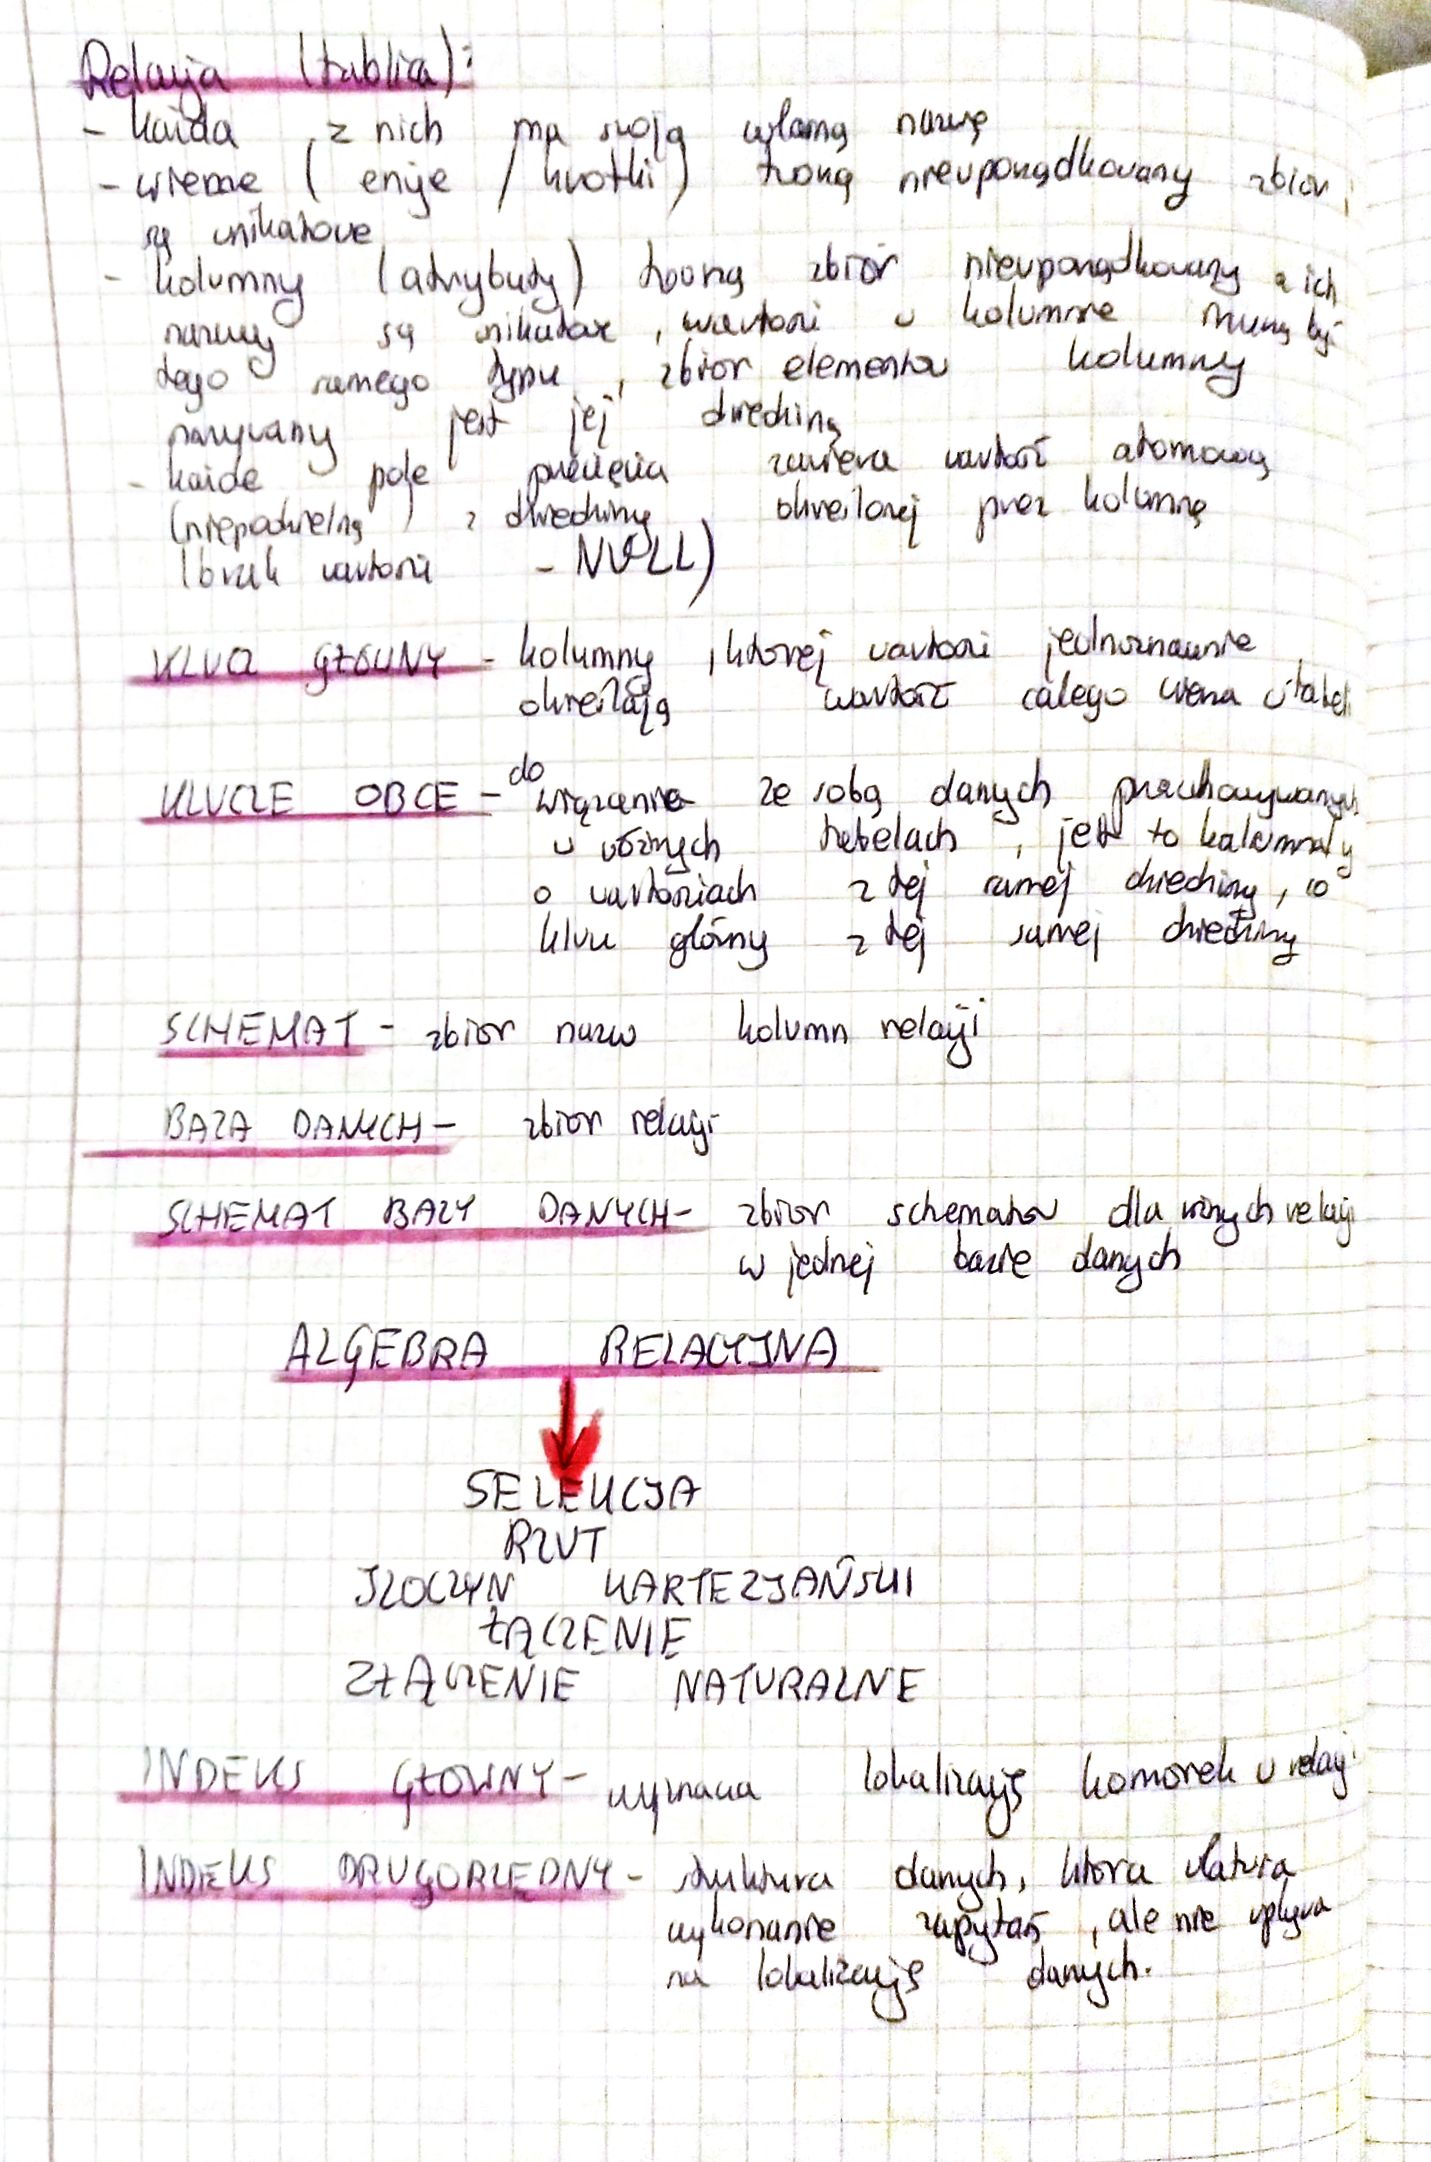 Relacja (tablica):
- każda z nich ma swoją własną nazwę
- wiersze (encje / krotki) tworzą nieuporządkowany zbiór,
są unikatowe
- kolumny (atrybuty) tworzą zbiór nieuporządkowany a ich
nazwy są unikatowe, wartości w kolumnie muszą być
tego samego typu, zbiór elementów kolumny
nazywany jest jej dziedziną
- każde pole przecięcia zawiera wartość atomową
(niepodzielną) z dziedziny określonej przez kolumnę
(brak wartości - NULL)
KLUCZ GŁÓWNY - kolumny, której wartości jednoznacznie
określają wartość całego wiersza w tabeli
KLUCZE OBCE - do wiązania ze sobą danych przechowywanych
w różnych tabelach, jest to kolumna/y
o wartościach z tej samej dziedziny, co
klucz główny z tej samej dziedziny
SCHEMAT - zbiór nazw kolumn relacji
BAZA DANYCH - zbiór relacji
SCHEMAT BAZY DANYCH - zbiór schematów dla różnych relacji
w jednej bazie danych
ALGEBRA RELACYJNA
SELEKCJA
RZUT
ILOCZYN KARTEZJAŃSKI
ŁĄCZENIE
ZŁĄCZENIE NATURALNE
INDEKS GŁÓWNY - wyznacza lokalizację komórek w relacji
INDEKS DRUGORZĘDNY - struktura danych, która ułatwia
wykonanie zapytań, ale nie wpływa
na lokalizację danych.